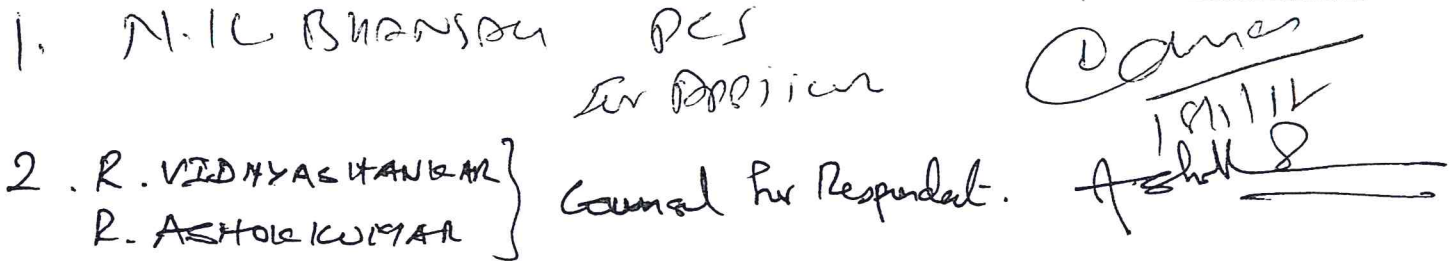 1. N.K BHANSALI PCS
for Applicant
2. R. VIDHYASHANKAR
R. ASHOK KUMAR } Counsel for Respondent. Ashok